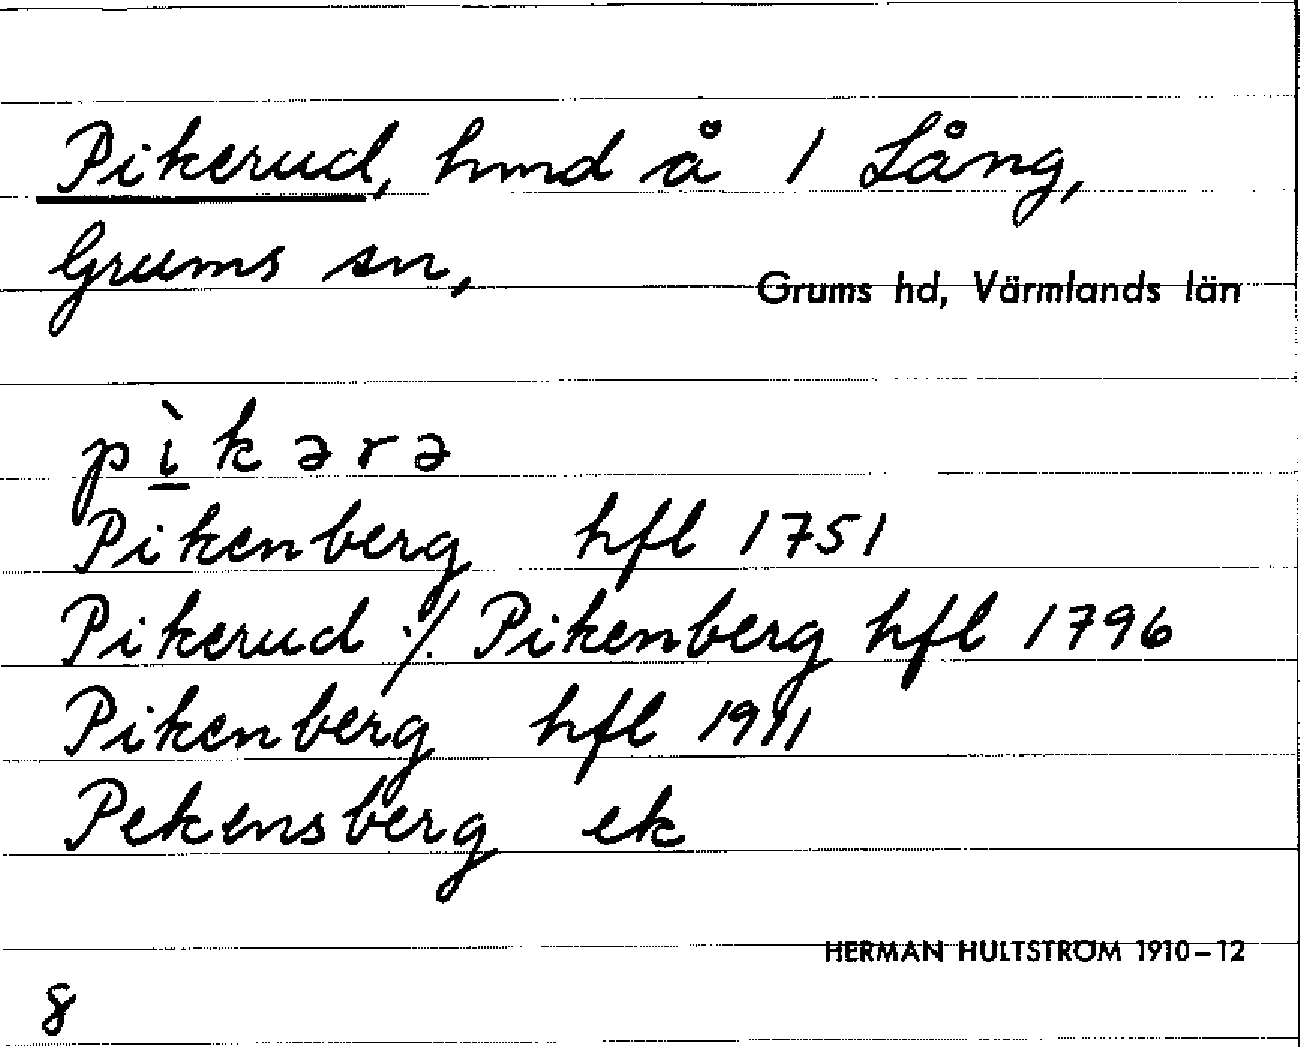 Pikerud, hmd å 1 Lång,
Grums sn,
Grums hd, Värmlands län
pı̠̀kərə
Pikenberg hfl 1751
Pikerud ·/. Pikenberg hfl 1796
Pikenberg hfl 1911
Pekensberg ek
HERMAN HULTSTRÖM 1910–12
8